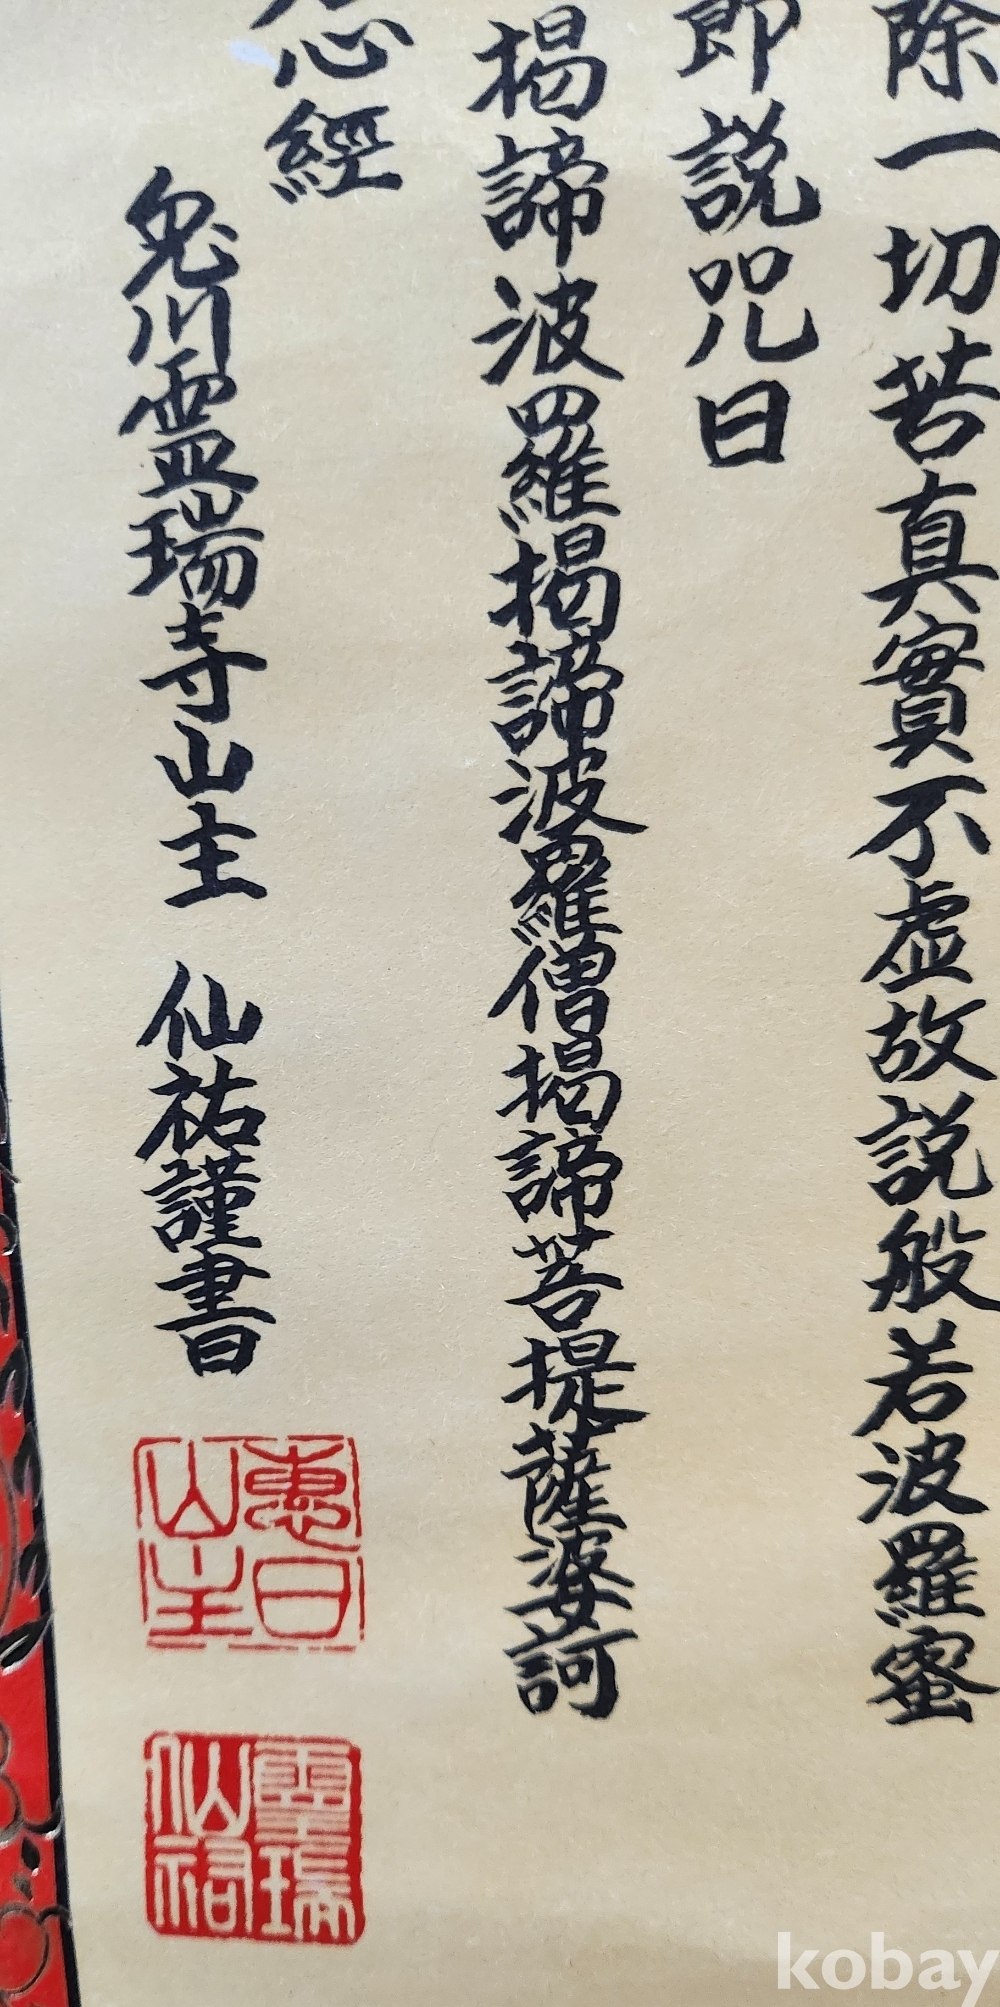 除一切苦真實不虛故説般若波羅蜜
即説咒曰
揭諦波羅揭諦波羅僧揭諦菩提薩婆訶
心經
兎川霊瑞寺山主 仙祐謹書
惠日
山主
靈瑞
仙祐
kobay